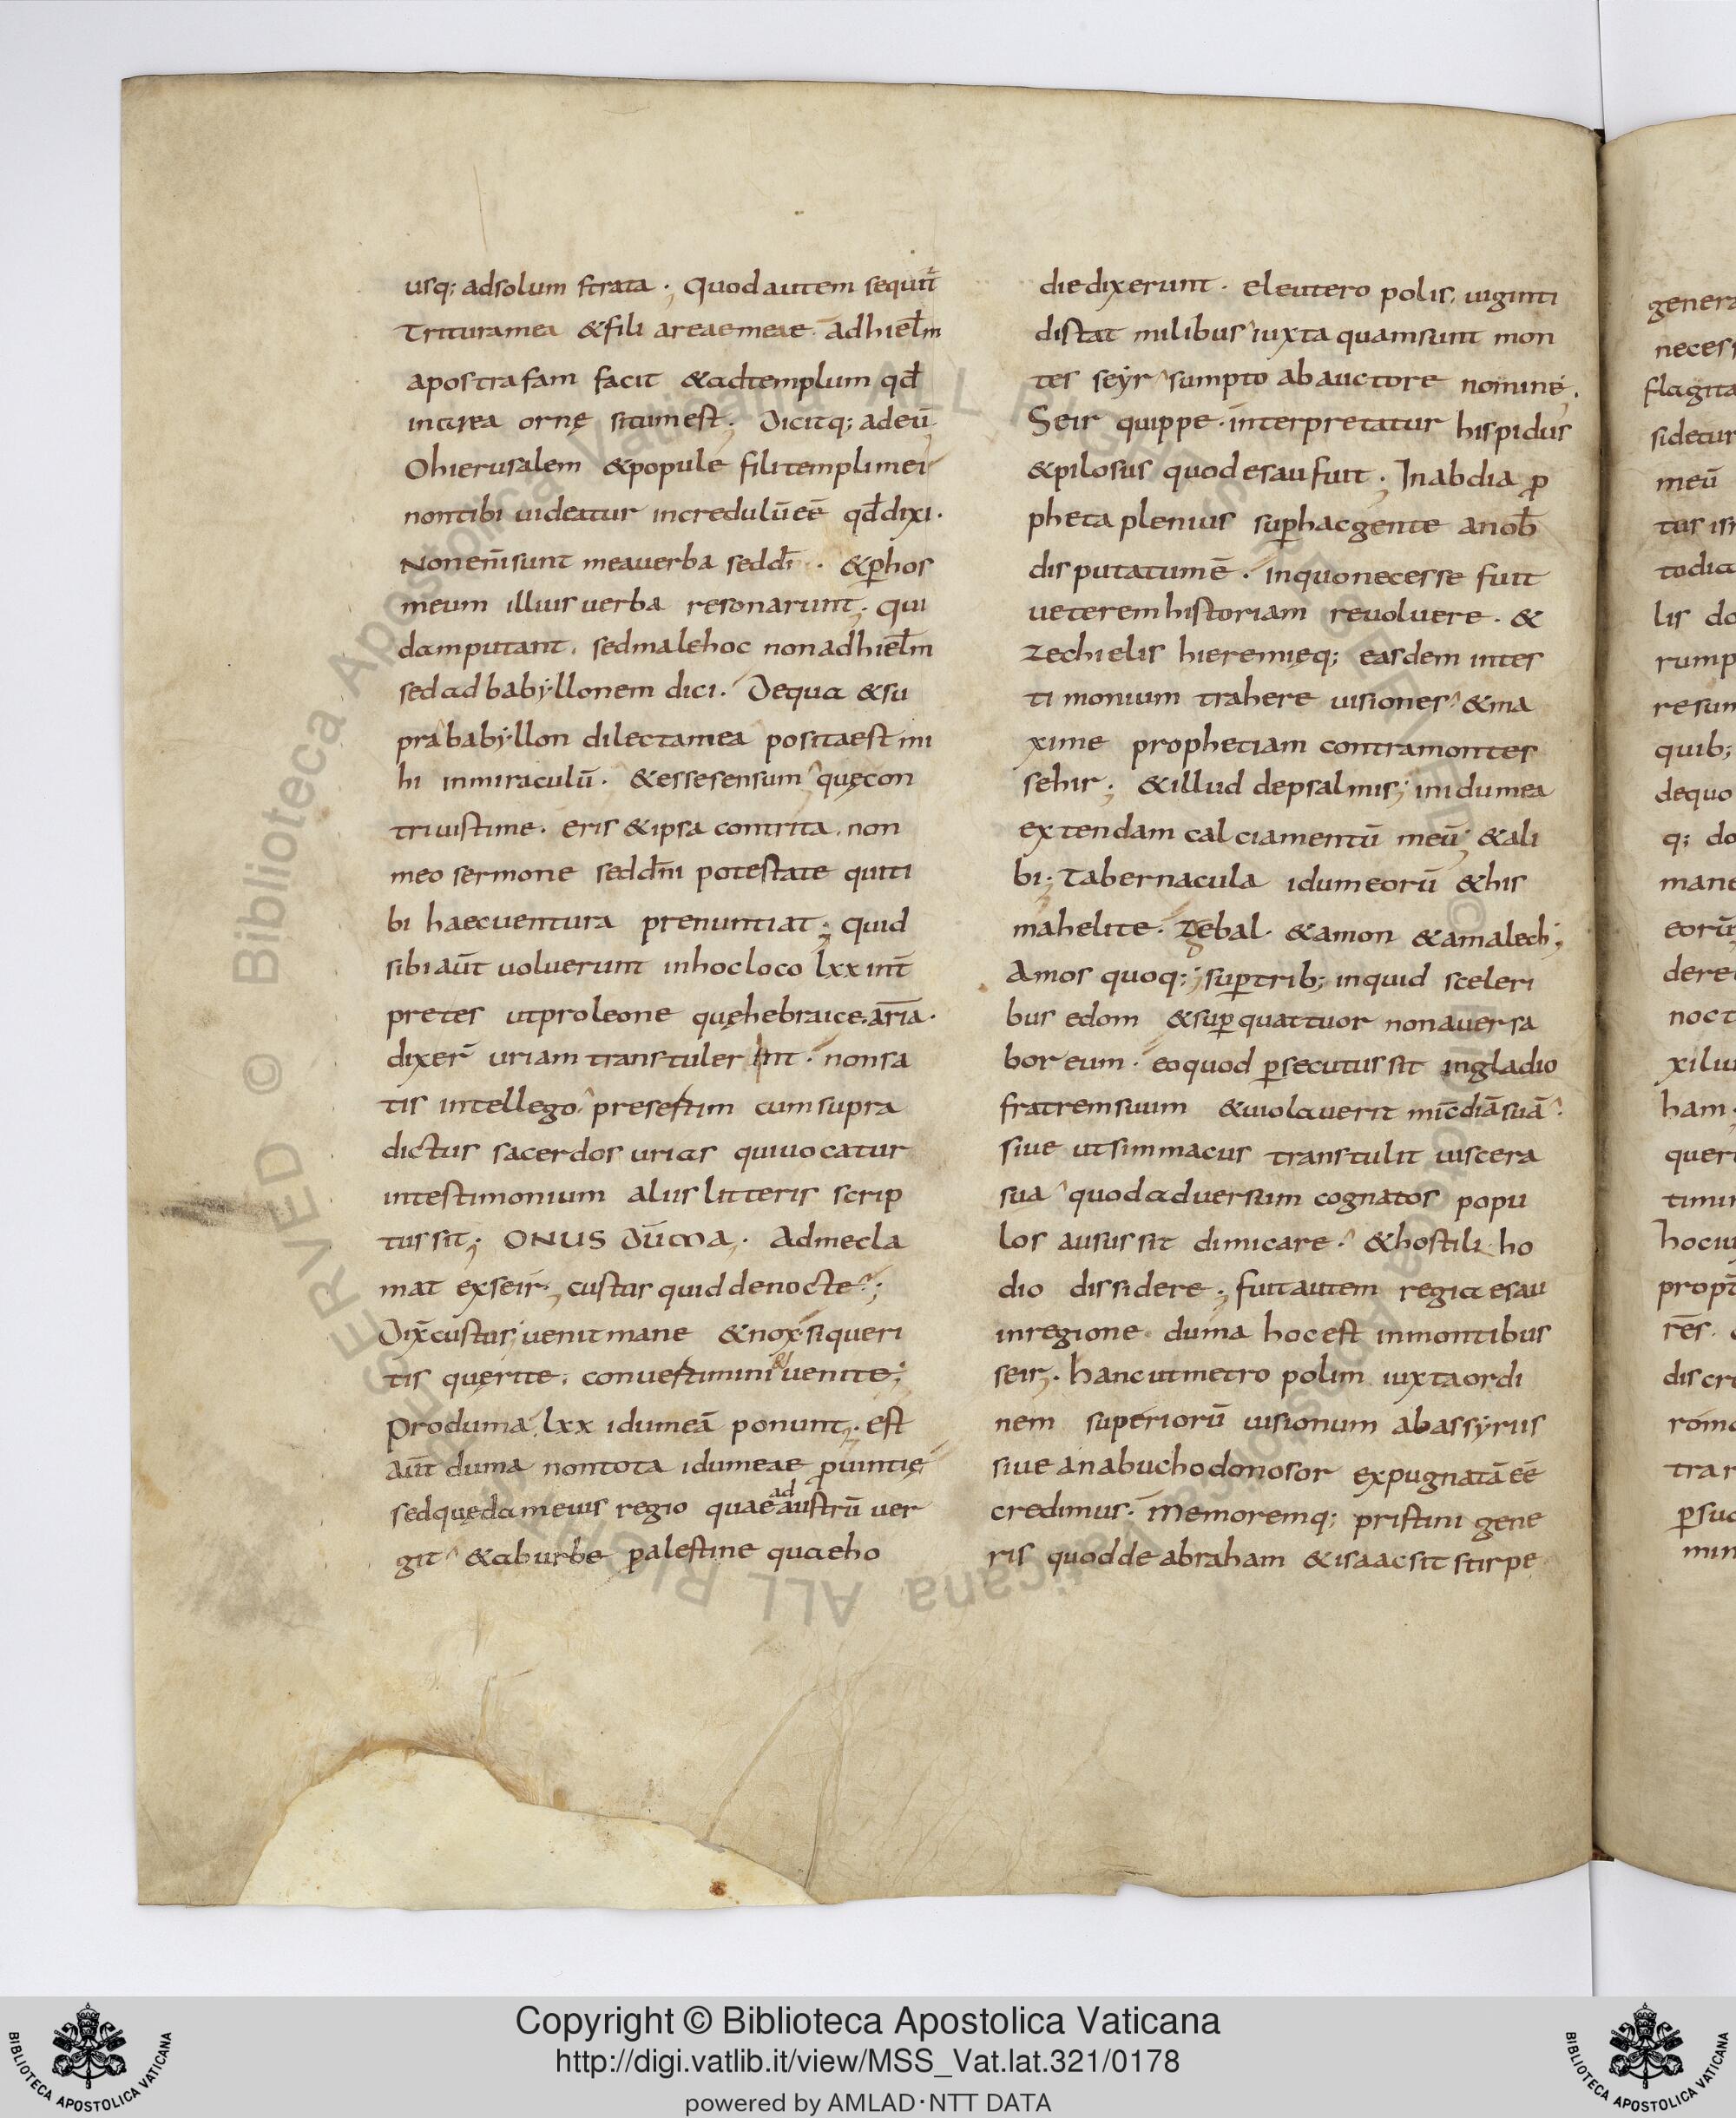 usq; adsolum strata ·, Quod autem sequūt
Trituramea & fili areaemeae · adhieɫm
apostrafam facit & adtemplum qđ
inarea ornę situm est ·, Dicitq; adeū,
Ohierusalem & popule fili templi mei
nontibi uideatur incredulū eē qđ dixi ·
Non enī sunt mea uerba sed dn̄i · & p̱ hos
meum illius uerba resonarunt ·, qui
dam putant, sed male hoc non adhieɫm
sed ad babyllonem dici · De qua & su
pra babyllon dilecta mea posita est mi
hi inmiraculū · & esse sensum quęcon
triuisti me · eris & ipsa contrita, non
meo sermone sed dn̄i potestate qui ti
bi haec uentura prenuntiat ·, quid
sibi aūt uoluerunt inhoc loco lxx int̄
pretes ut pro leone quę hebraice · ar̄ia ·
dixer̄ uriam transtuler int · non sa
tis intellego · presertim cum supra
dictus sacerdos urias qui uocatur
intestimonium aliis litteris scrip
tus sit ·, ONUS DŪMA ·, Admecla
mat exseir ·, custus quid denocte ;
Dix̄ custus ; uenit mane & nox si queri
tis quęrite, conuertimini & uenite ;
Pro duma, lxx idumeā ponunt ·, est
aūt duma non tota idumeae puintię
sed quędam eius regio quae ad austrū uer
git & ab urbe palestine quae ho
die dixerunt · eleutero polis, uiginti
distat milibus iuxta quam sunt mon
tes seyr sumpto ab auctore nomine ·,
Seir quippe · interpretatur hispidus
& pilosus quod esau fuit ·, In abdia p
pheta plenius sup̱ hac gente a nob̄
disputatum ē · inquo necesse fuit
ueterem historiam reuoluere · &
zechielis hieremięq; easdem intes
timonium trahere uisiones & ma
xime prophetiam contra montes
sehir ·, & illud depsalmis ; in idumea
extendam calciamentū meū ; & ali
bi ·, Tabernacula idumeorū & his
mahelite · Zebal · & amon & amalech ;,
Amos quoq; ; sup̱ trib; inquid sceleri
bus edom & sup̱ quattuor non auersa
bor eum · eo quod p̱secutus sit ingladio
fratrem suum & uiolauerit mīcdiā suā ·
siue ut simmacus transtulit uiscera
sua quod aduersum cognatos popu
los ausus sit dimicare · & hostili ho
dio dissidere ·, fuit autem regia esau
inregione · duma hoc est inmontibus
seir ·, hanc ut metro polim iuxta ordi
nem superiorū uisionum ab assyriis
siue anabuchodonosor expugnatā eē
credimus · Memoremq; pristini gene
ris quod de abraham & isaac sit stirpe
genera
necess
flagita
sidetur
meū
tus isr
todia
lis do
rump
resun
quib;
dequo
q; do
mane
eorū
dere
noct
xiliu
ham
quer
timur
hociu
propt̄
rēs ·
discre
roma
trar
p̱sua
min
© Biblioteca Apostolica Vaticana ALL RIGHTS RESERVED © Biblioteca Apostolica Vaticana ALL RIGHTS RESERVED
Copyright © Biblioteca Apostolica Vaticana
http://digi.vatlib.it/view/MSS_Vat.lat.321/0178
powered by AMLAD·NTT DATA
BIBLIOTECA APOSTOLICA VATICANA
BIBLIOTECA APOSTOLICA VATICANA